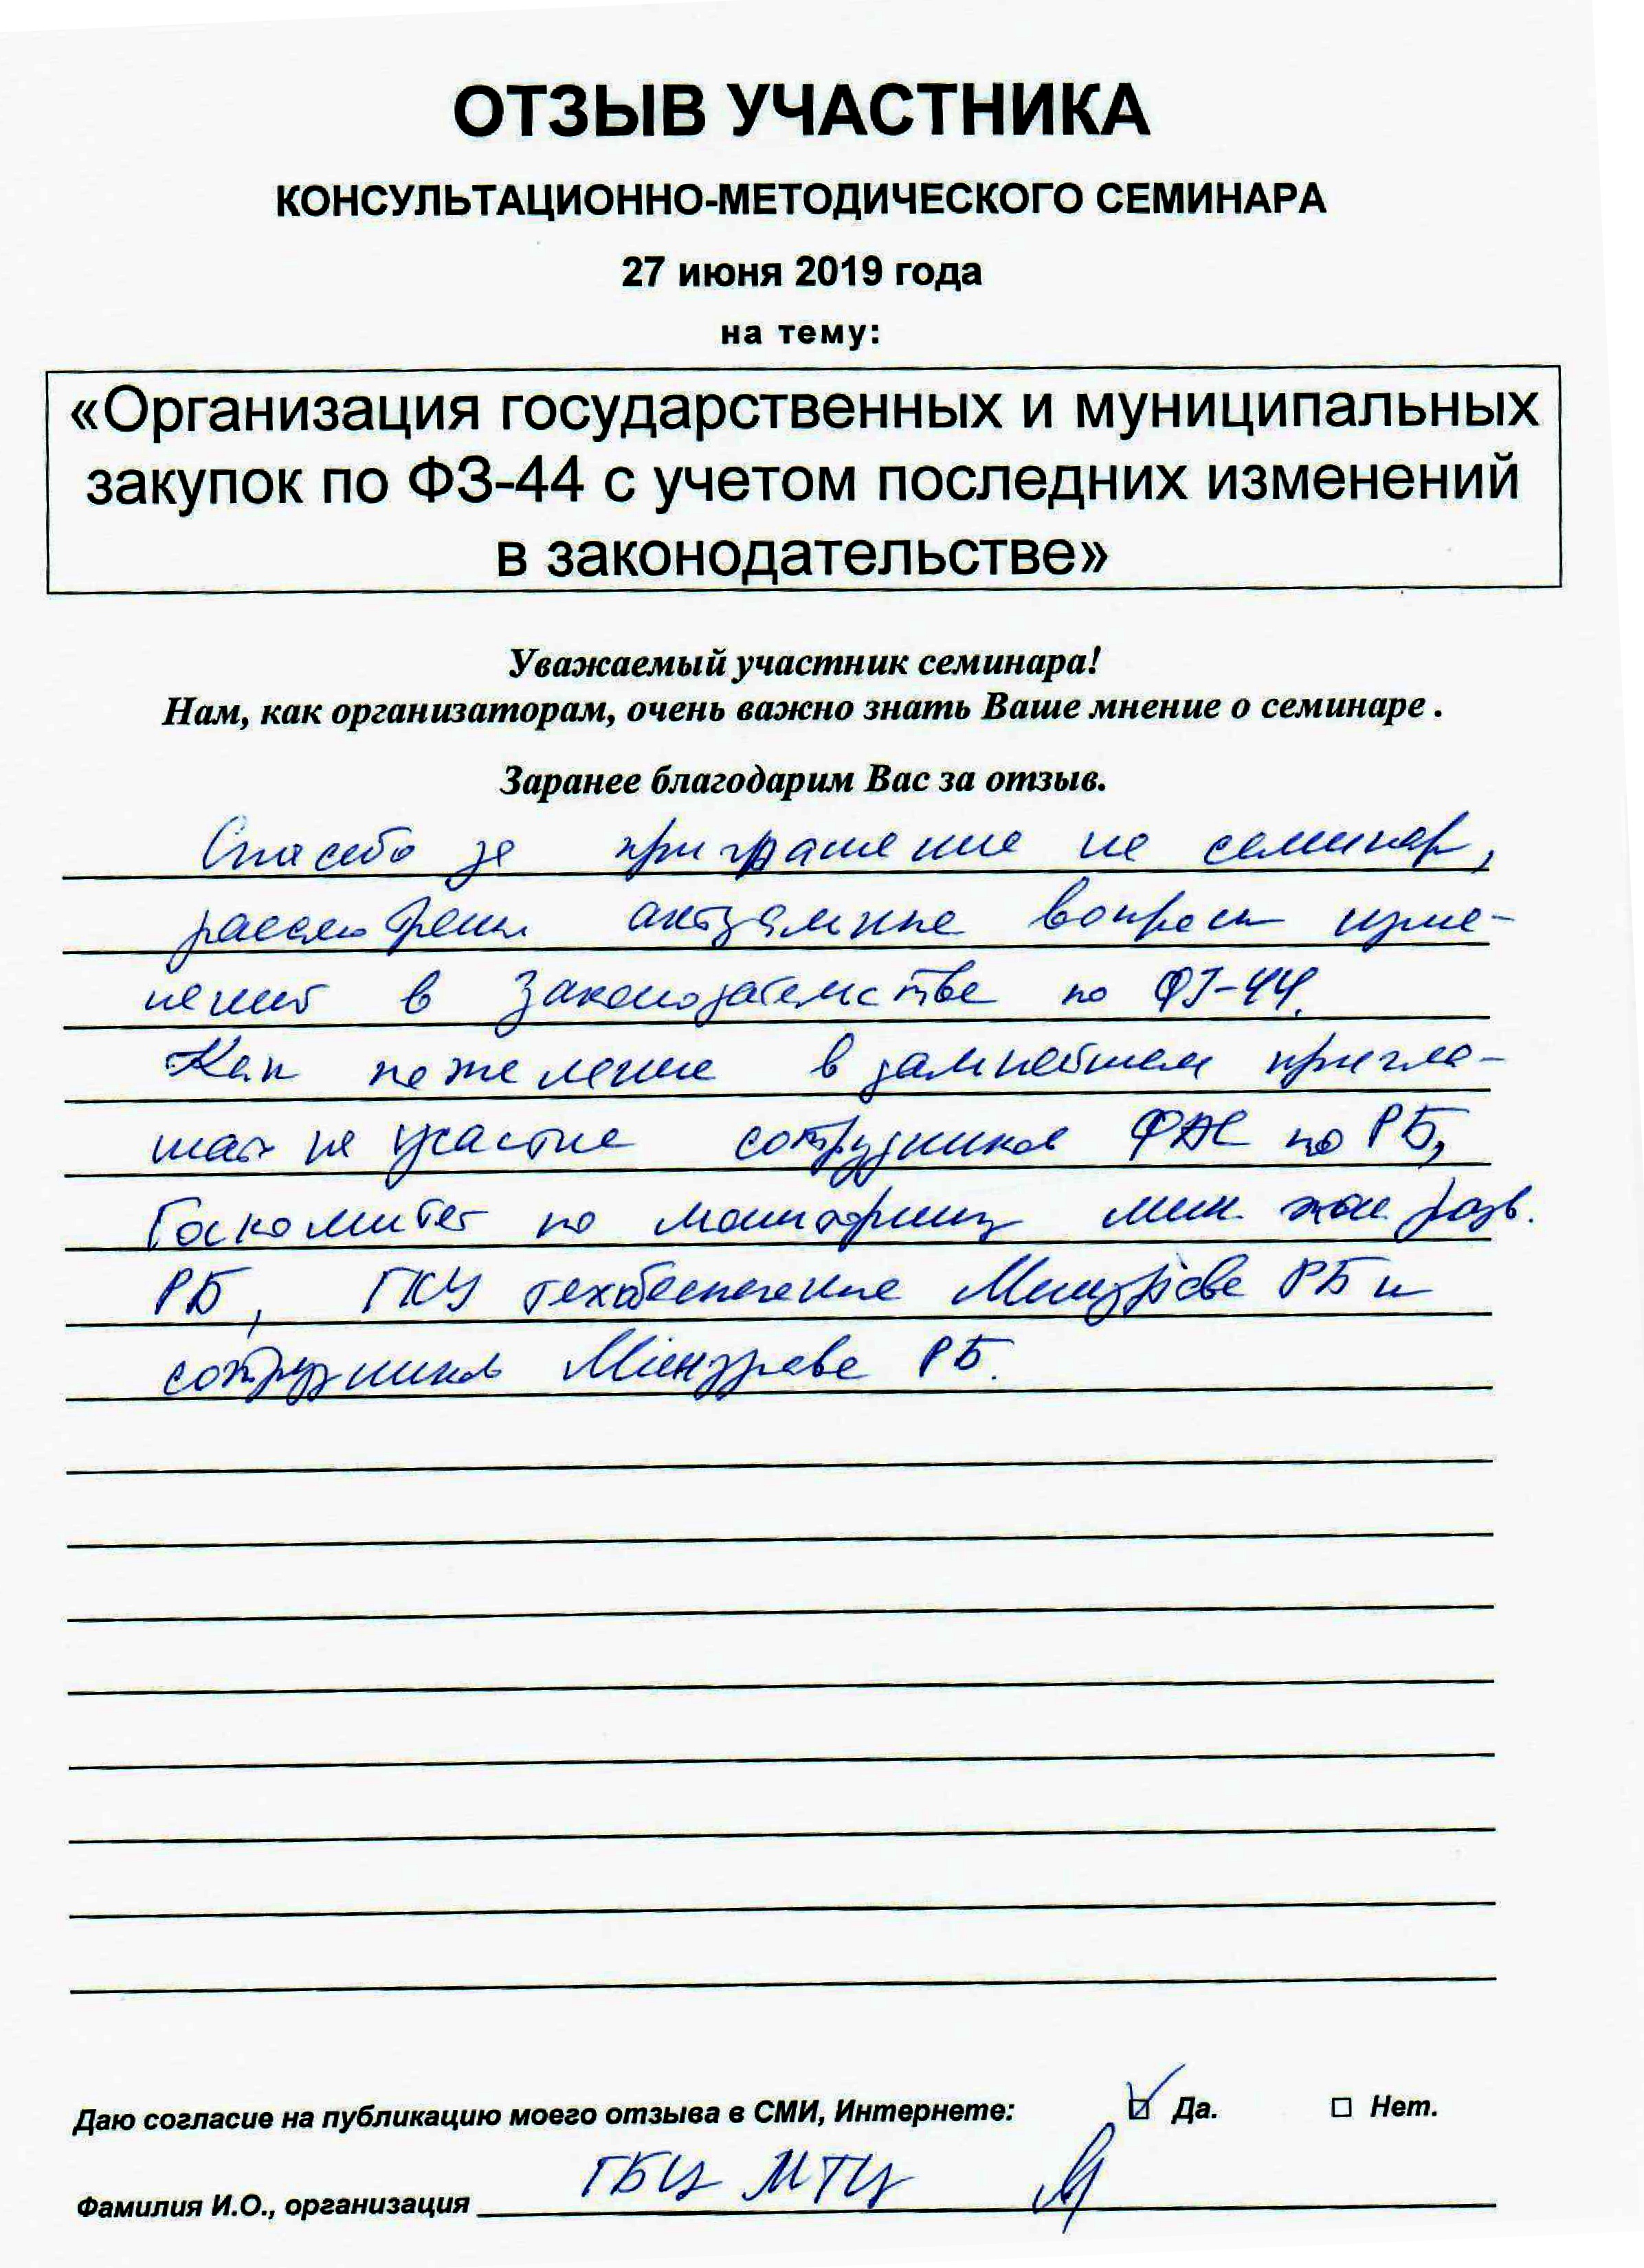 ОТЗЫВ УЧАСТНИКА
КОНСУЛЬТАЦИОННО-МЕТОДИЧЕСКОГО СЕМИНАРА
27 июня 2019 года
на тему:
«Организация государственных и муниципальных
закупок по ФЗ-44 с учетом последних изменений
в законодательстве»
Уважаемый участник семинара!
Нам, как организаторам, очень важно знать Ваше мнение о семинаре .
Заранее благодарим Вас за отзыв.
Спасибо за приглашение на семинар,
рассмотрены актуальные вопросы изме-
нений в законодательстве по ФЗ-44.
Как пожелание в дальнейшем пригла-
шать на участие сотрудников ФАС по РБ,
Госкомитет по мониторингу мин. эконом. разв.
РБ, ГКУ техобеспечение Минздрава РБ и
сотрудников Минздрава РБ.
Даю согласие на публикацию моего отзыва в СМИ, Интернете: Да. Нет.
Фамилия И.О., организация ГБУ МТЦ